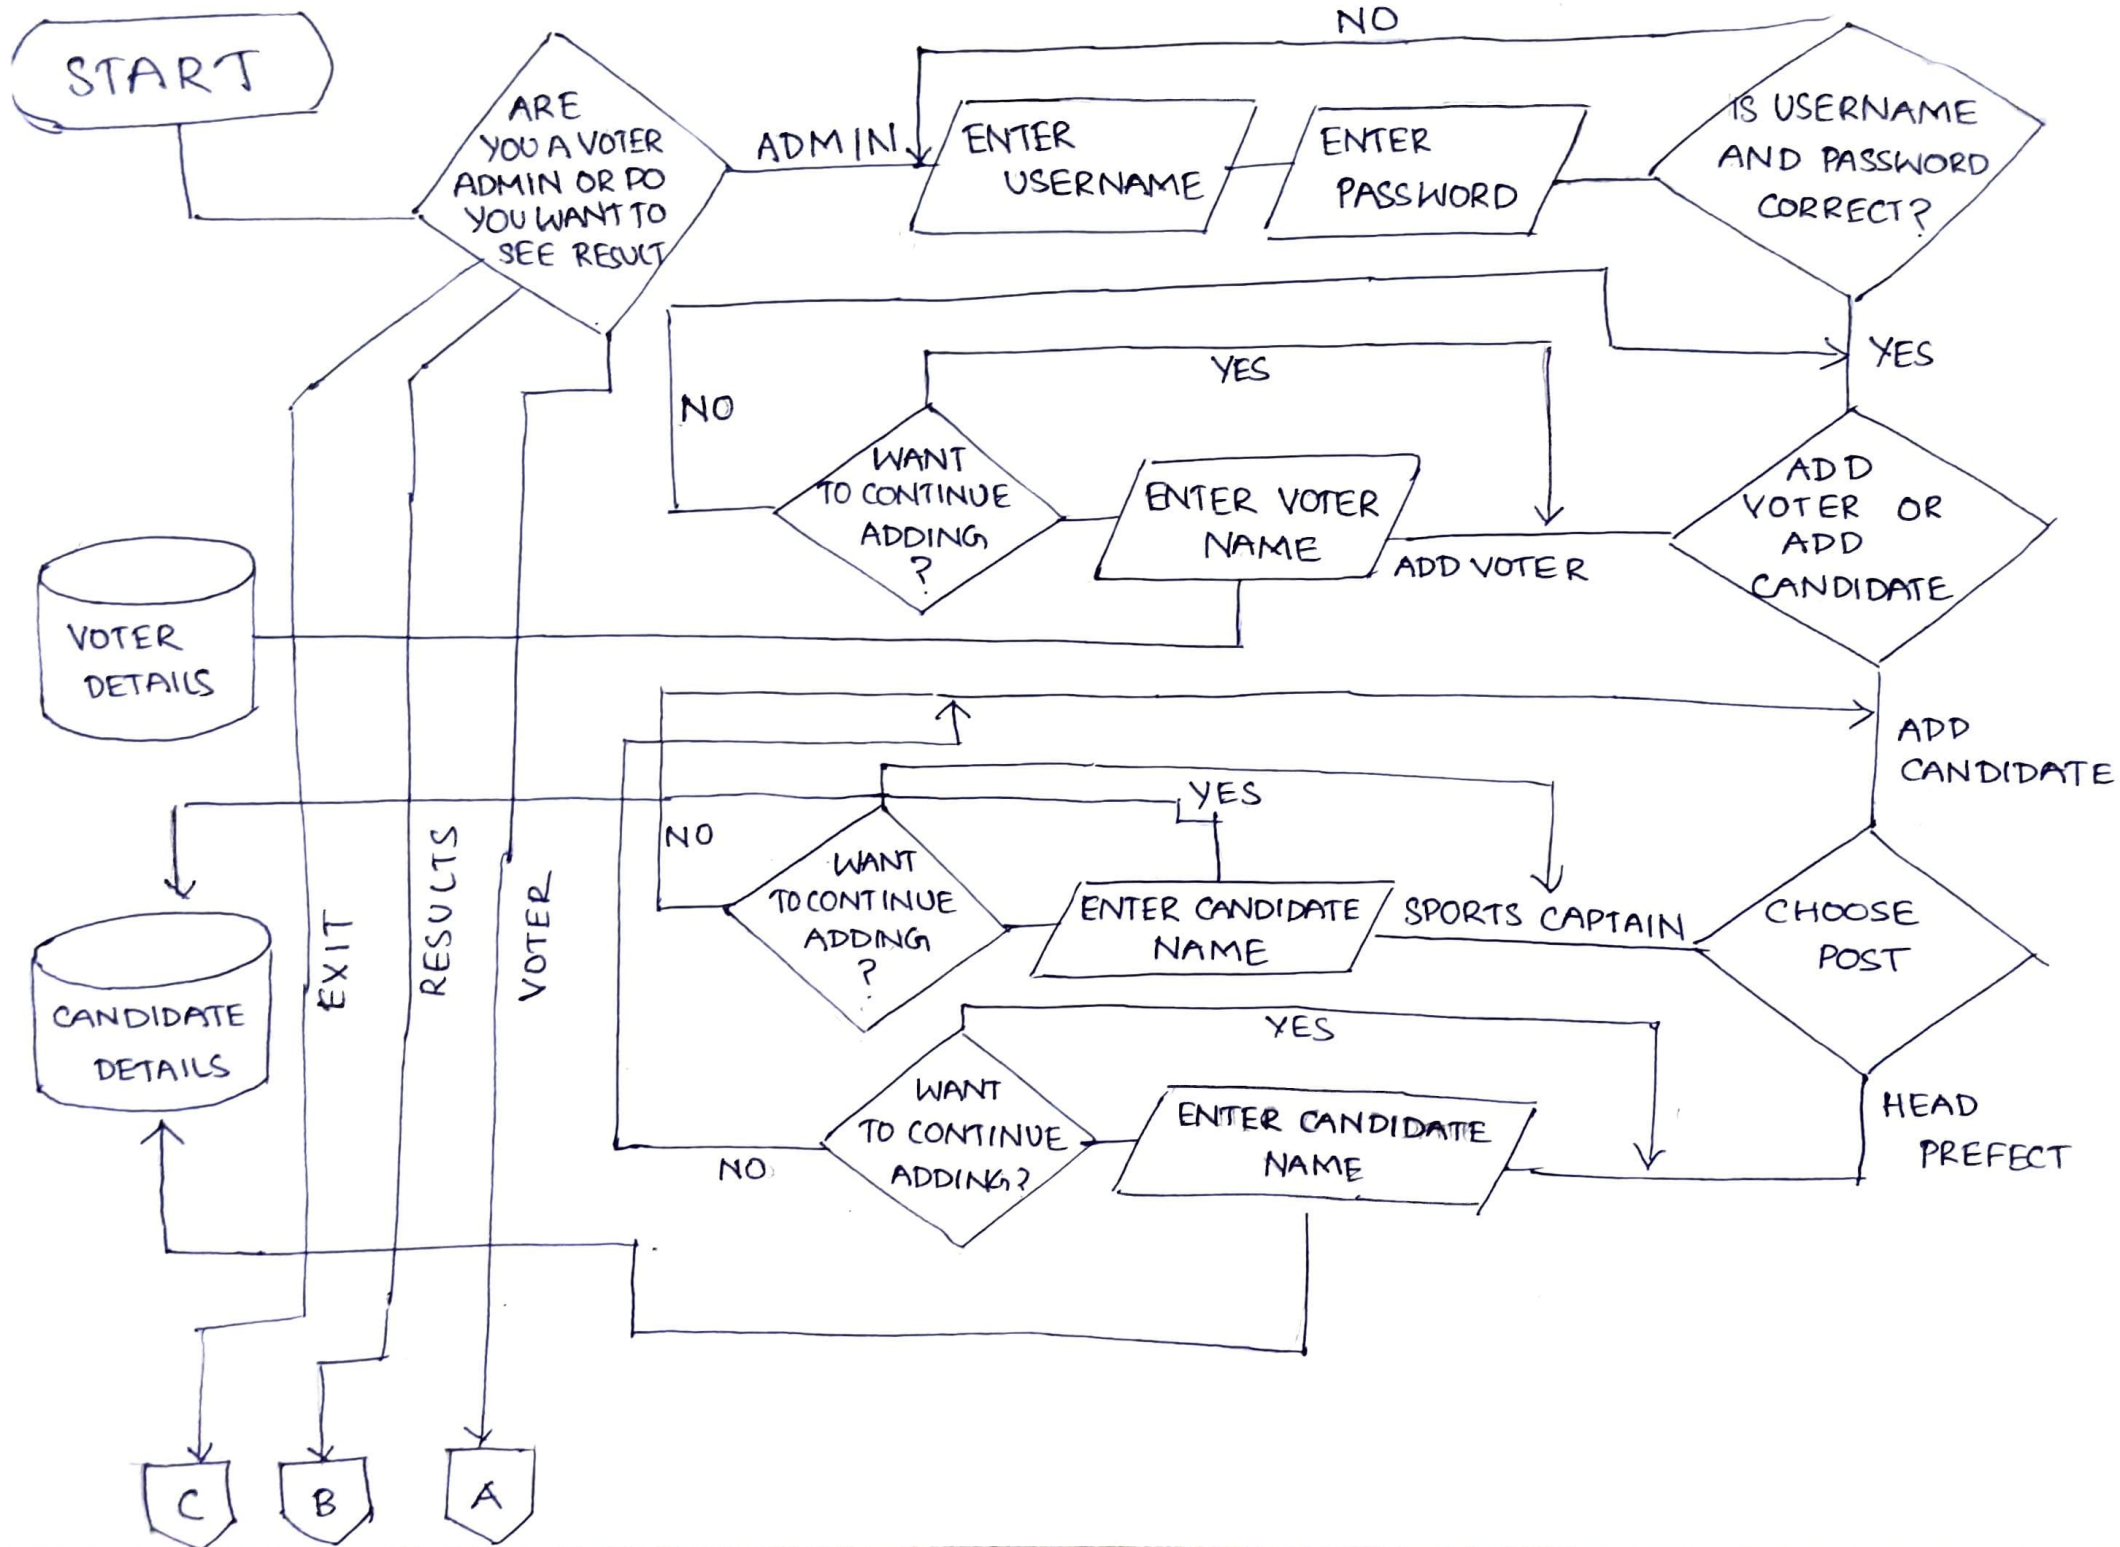 START
ARE
YOU A VOTER
ADMIN OR DO
YOU WANT TO
SEE RESULT
ADMIN
NO
ENTER
USERNAME
ENTER
PASSWORD
IS USERNAME
AND PASSWORD
CORRECT?
YES
NO
YES
WANT
TO CONTINUE
ADDING
?
ENTER VOTER
NAME
ADD VOTER
ADD
VOTER OR
ADD
CANDIDATE
VOTER
DETAILS
ADD
CANDIDATE
NO
YES
WANT
TO CONTINUE
ADDING
?
ENTER CANDIDATE
NAME
SPORTS CAPTAIN
CHOOSE
POST
CANDIDATE
DETAILS
EXIT
RESULTS
VOTER
YES
WANT
TO CONTINUE
ADDING?
NO
ENTER CANDIDATE
NAME
HEAD
PREFECT
C
B
A